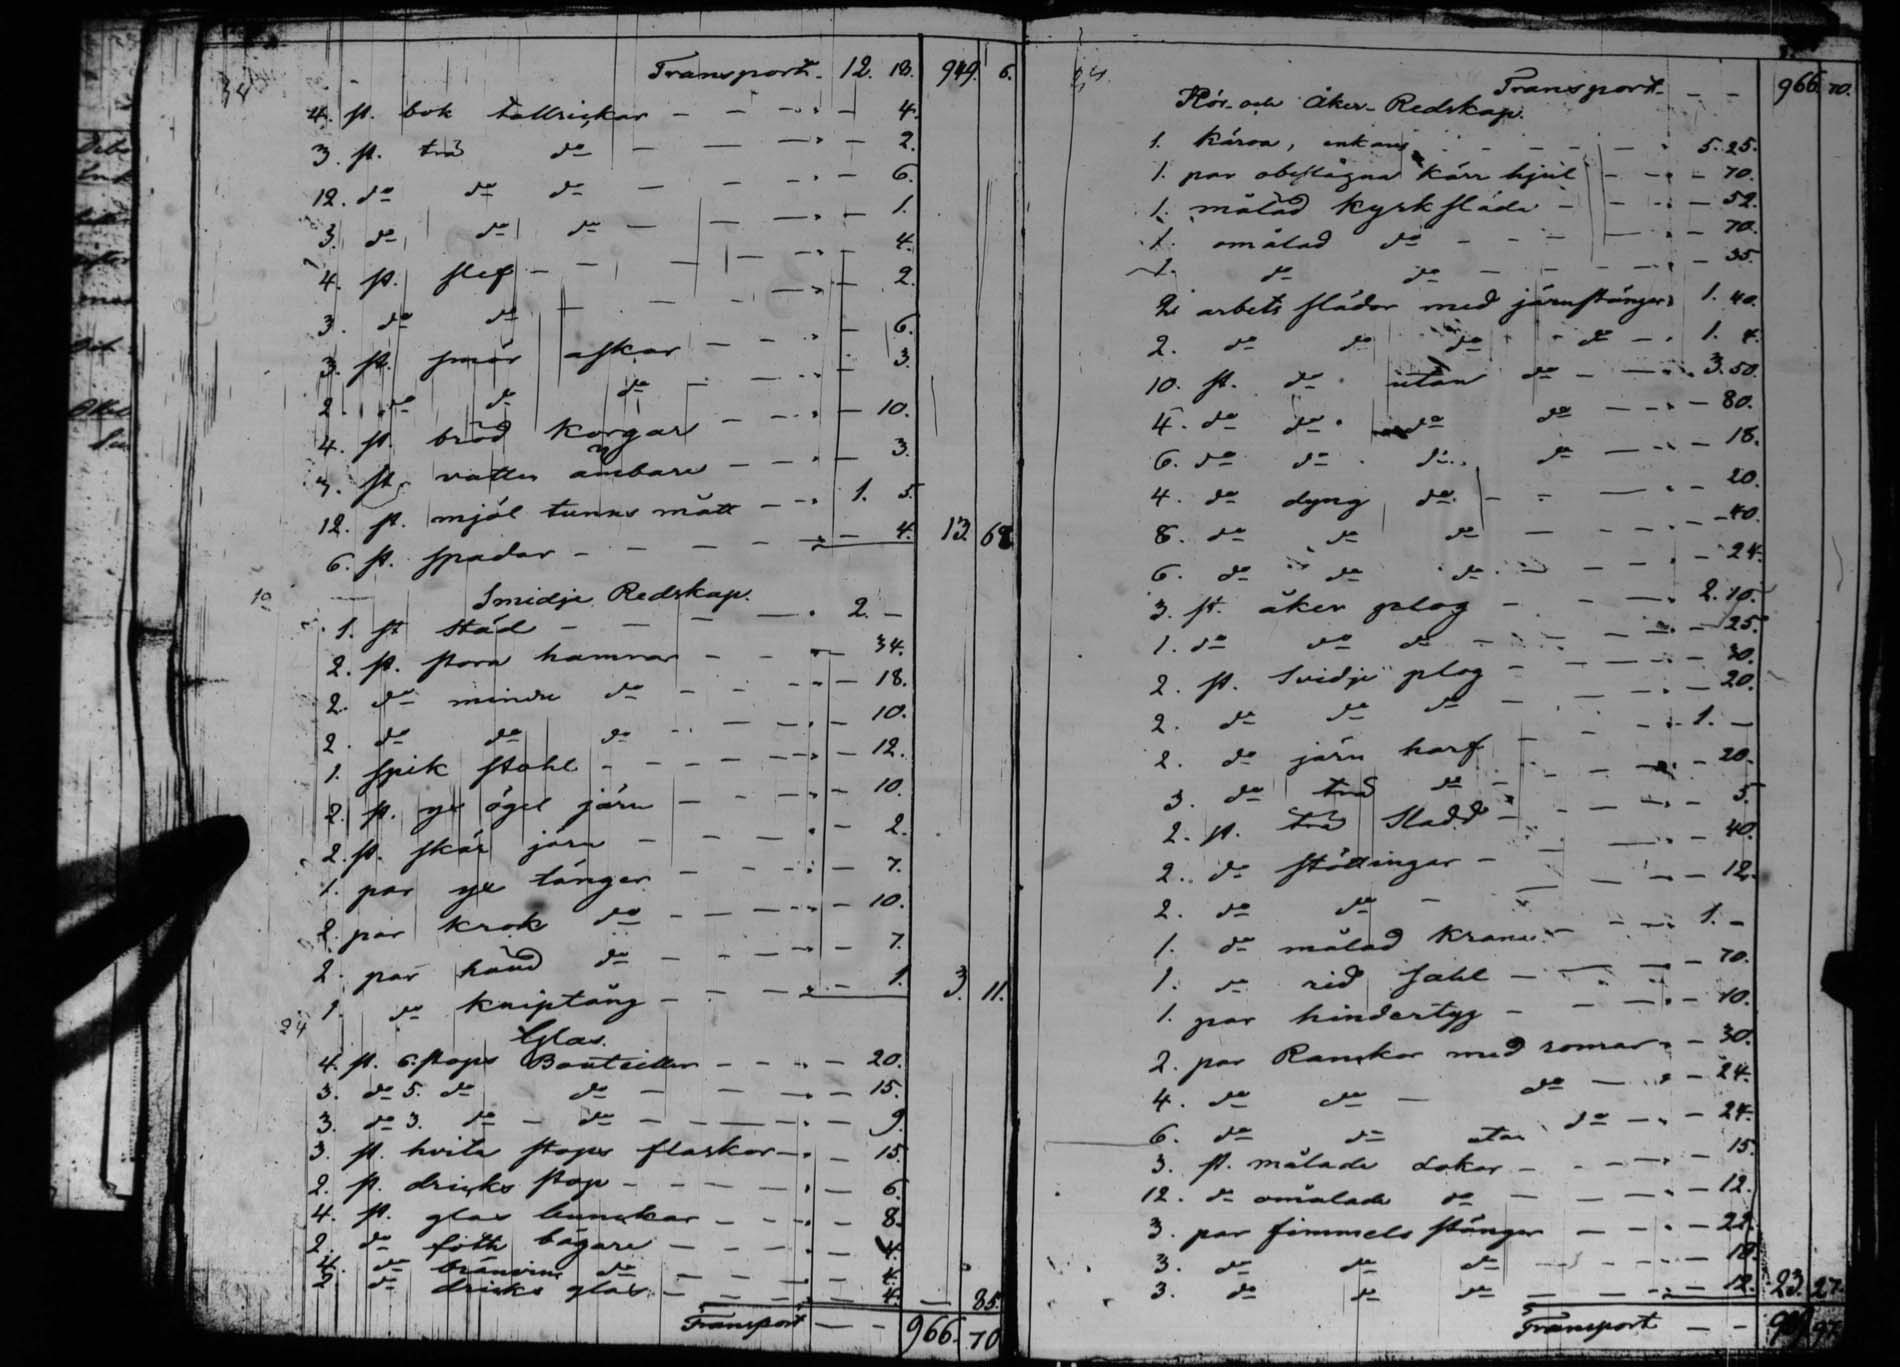 34
Transport. 12. 18. 949. 6.
4. st. bok tallrickar - 4.
3. st. trä do - 2.
12. do do do - 6.
3. do do do - 1.
4. st. slef - 4.
3. do do - 2.
3. st. smör askar - 6.
2. do do do - 3.
4. st. bröd korgar - 10.
3. st. vatten ambare - 3.
12. st. mjöl tunns mått - 1. 5.
6. st. spadar - 4. 13. 68
10
Smidje Redskap.
1. st städ - 2. -
2. st. stora hamrar - 34.
2. do mindre do - 18.
2. do do do - 10.
1. spik stahl - 12.
2. st. yx ögel järn - 10.
2. st. skär järn - 2.
1. par yx tänger - 7.
2. par krok do - 10.
2. par hand do - 7.
1. do kniptång - 1. 3. 11.
24
Glas.
4. st. 6. stops Bouteiller - 20.
3. do 5. do do - 15.
3. do 3. do - do - 9.
3. st. hvita stops flaskor - 15.
2. st. dricks stop - 6.
4. st. glas - 8.
2. do fotk bägare - 4.
4. do bränvins do - 4.
2 do dricks glas - 4. - 85.
Transport - - 966. 70
34.
Transport - - 966. 70.
Kör- och Åker-Redskap.
1. Kärra, - 5. 25.
1. par obeslagna kärr hjul - 70.
1. målad kyrk släde - 52.
1. omålad do - 70.
1. do do - 35.
2 arbets slädor med järnstänger 1. 40.
2. do do do do - 1. 4.
10. st. do utan do - 3. 50.
4. do do do do - 80.
6. do do do do - 18.
4. do dyng do - 20.
8. do do do - 40.
6. do do do - 24.
3. st. åker plog - 2. 10.
1. do do do - 25.
2. st. Svidje plog - 30.
2. do do do - 20.
2. do järn harf - 1. -
3. do trä do - 20.
2. st. trä Sladd - 5.
2. do stöttingar - 40.
2. do do - 12.
1. do målad - 1. -
1. do rid sahl - 70.
1. par hindertyg - 10.
2. par Rankor med romar - 30.
4. do do - do - 24.
6. do do utan do - 24.
3. st. målade Lokor - 15.
12. do omålade do - 12.
3. par fimmels stänger - 22.
3. do do do - 18.
3. do do do - 12. 23. 27.
Transport - - 97.